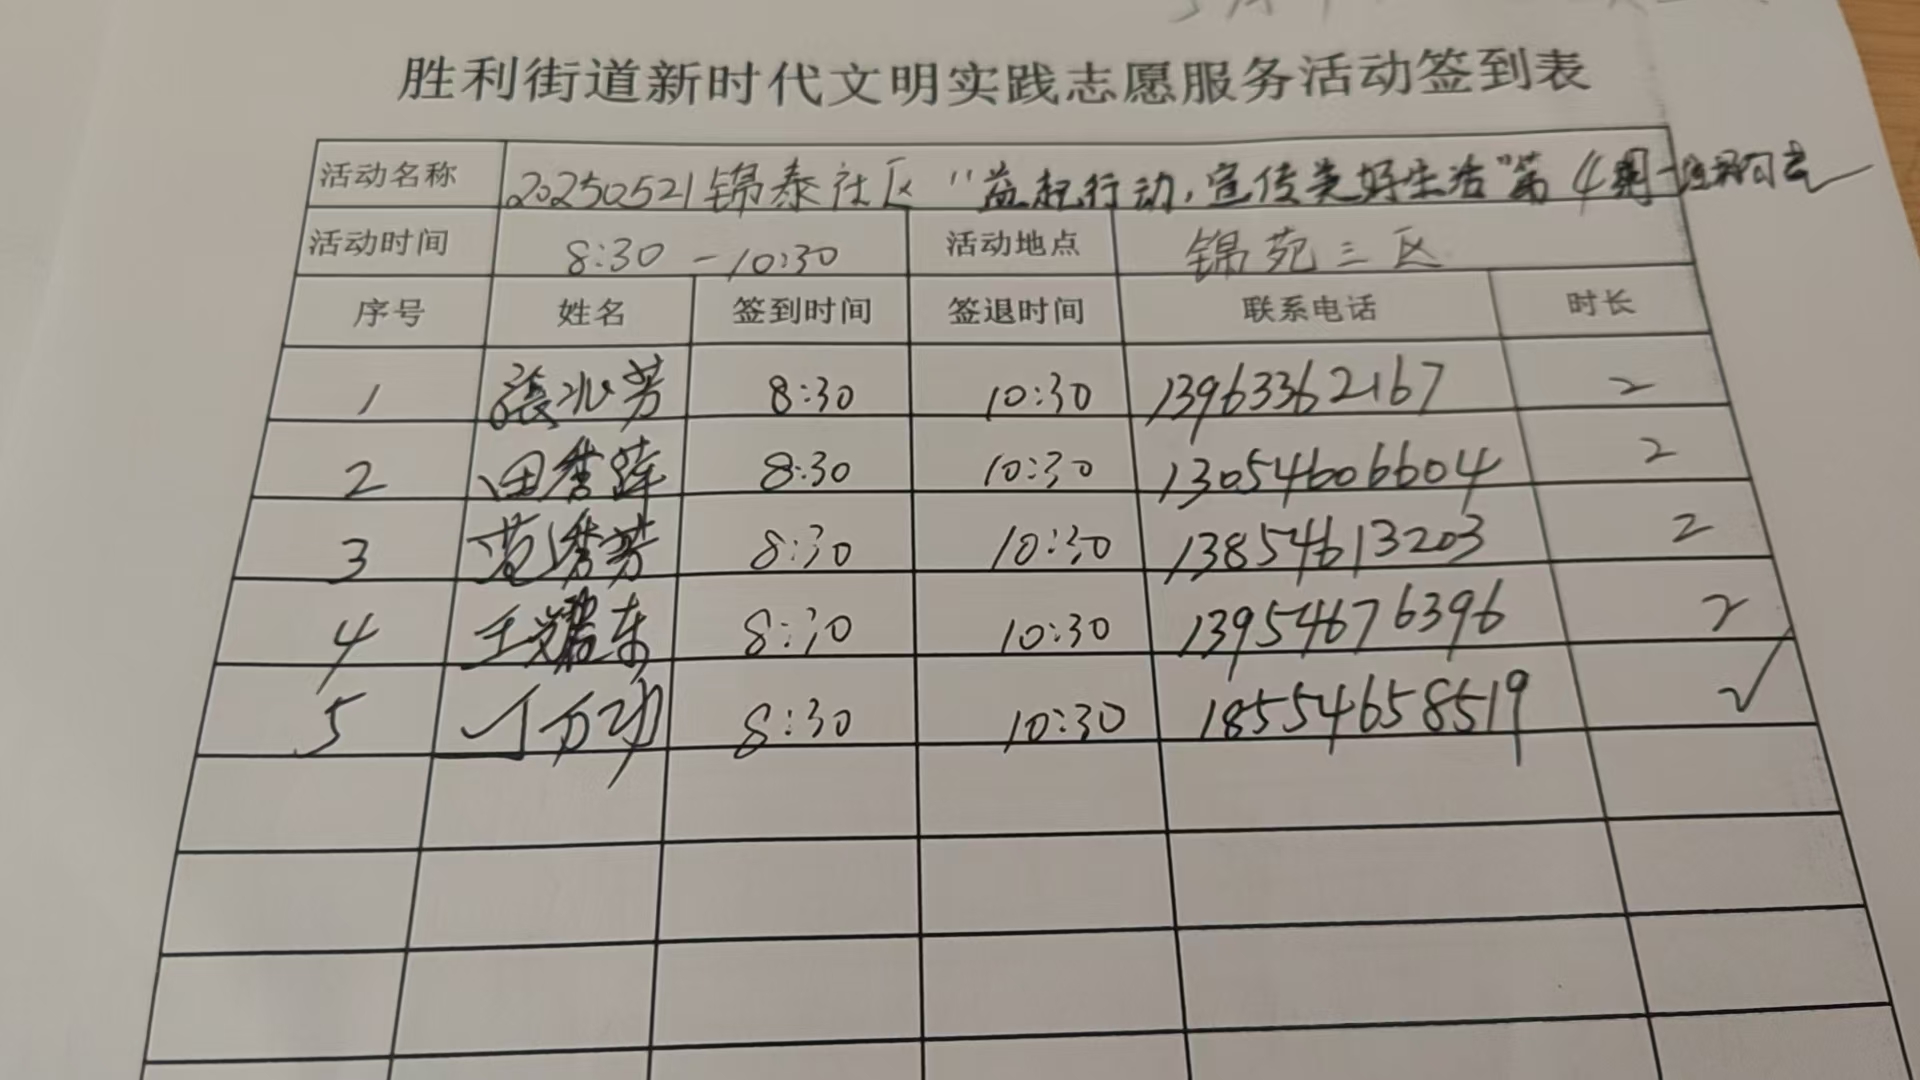 胜利街道新时代文明实践志愿服务活动签到表
活动名称 20250521锦泰社区“益起行动,宣传美好生活”第4期
活动时间 8:30-10:30 活动地点 锦苑三区
序号 姓名 签到时间 签退时间 联系电话 时长
1 張冰芳 8:30 10:30 13963362167 2
2 田秀萍 8:30 10:30 13054606604 2
3 范秀芳 8:30 10:30 13854613203 2
4 王耀东 8:30 10:30 13954676396 2
5 丁万功 8:30 10:30 18554658519 √